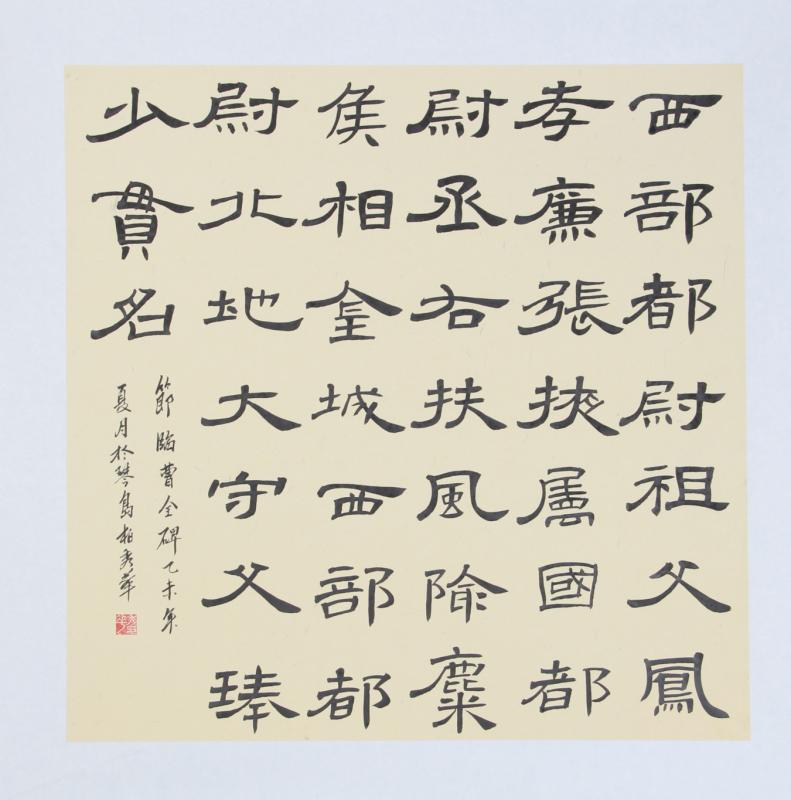 西部都尉祖父鳳
孝廉張掖屬國都
尉丞右扶風隃麋
侯相金城西部都
尉北地大守父琫
少貫名
節臨曹全碑乙未年
夏月於琴島柏秀華